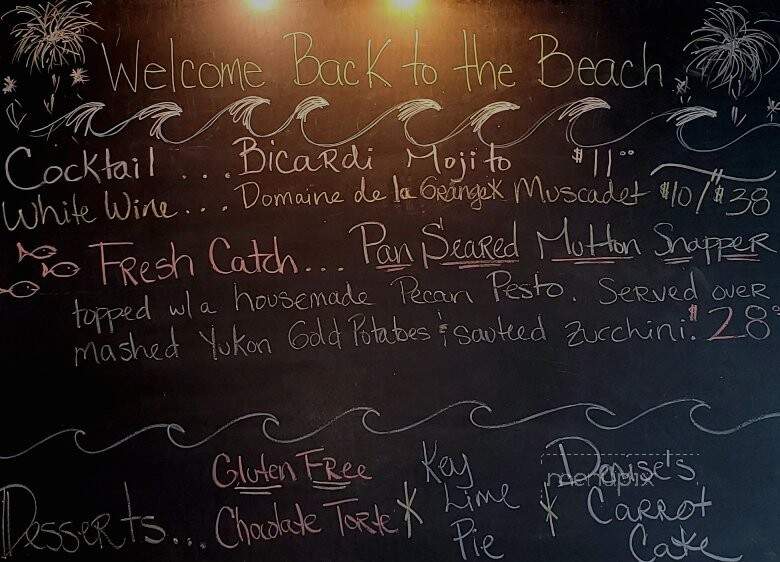 Welcome Back to the Beach
Cocktail ... Bicardi Mojito $11⁰⁰
White Wine... Domaine de la Grangex Muscadet $10/$38
Fresh Catch... Pan Seared Mutton Snapper
topped w/a housemade Pecan Pesto. Served over
mashed Yukon Gold Potatoes & sauteed zucchini. $28
Desserts... Gluten Free Chocolate Torte * Key Lime Pie * Denise's Carrot Cake
menupix